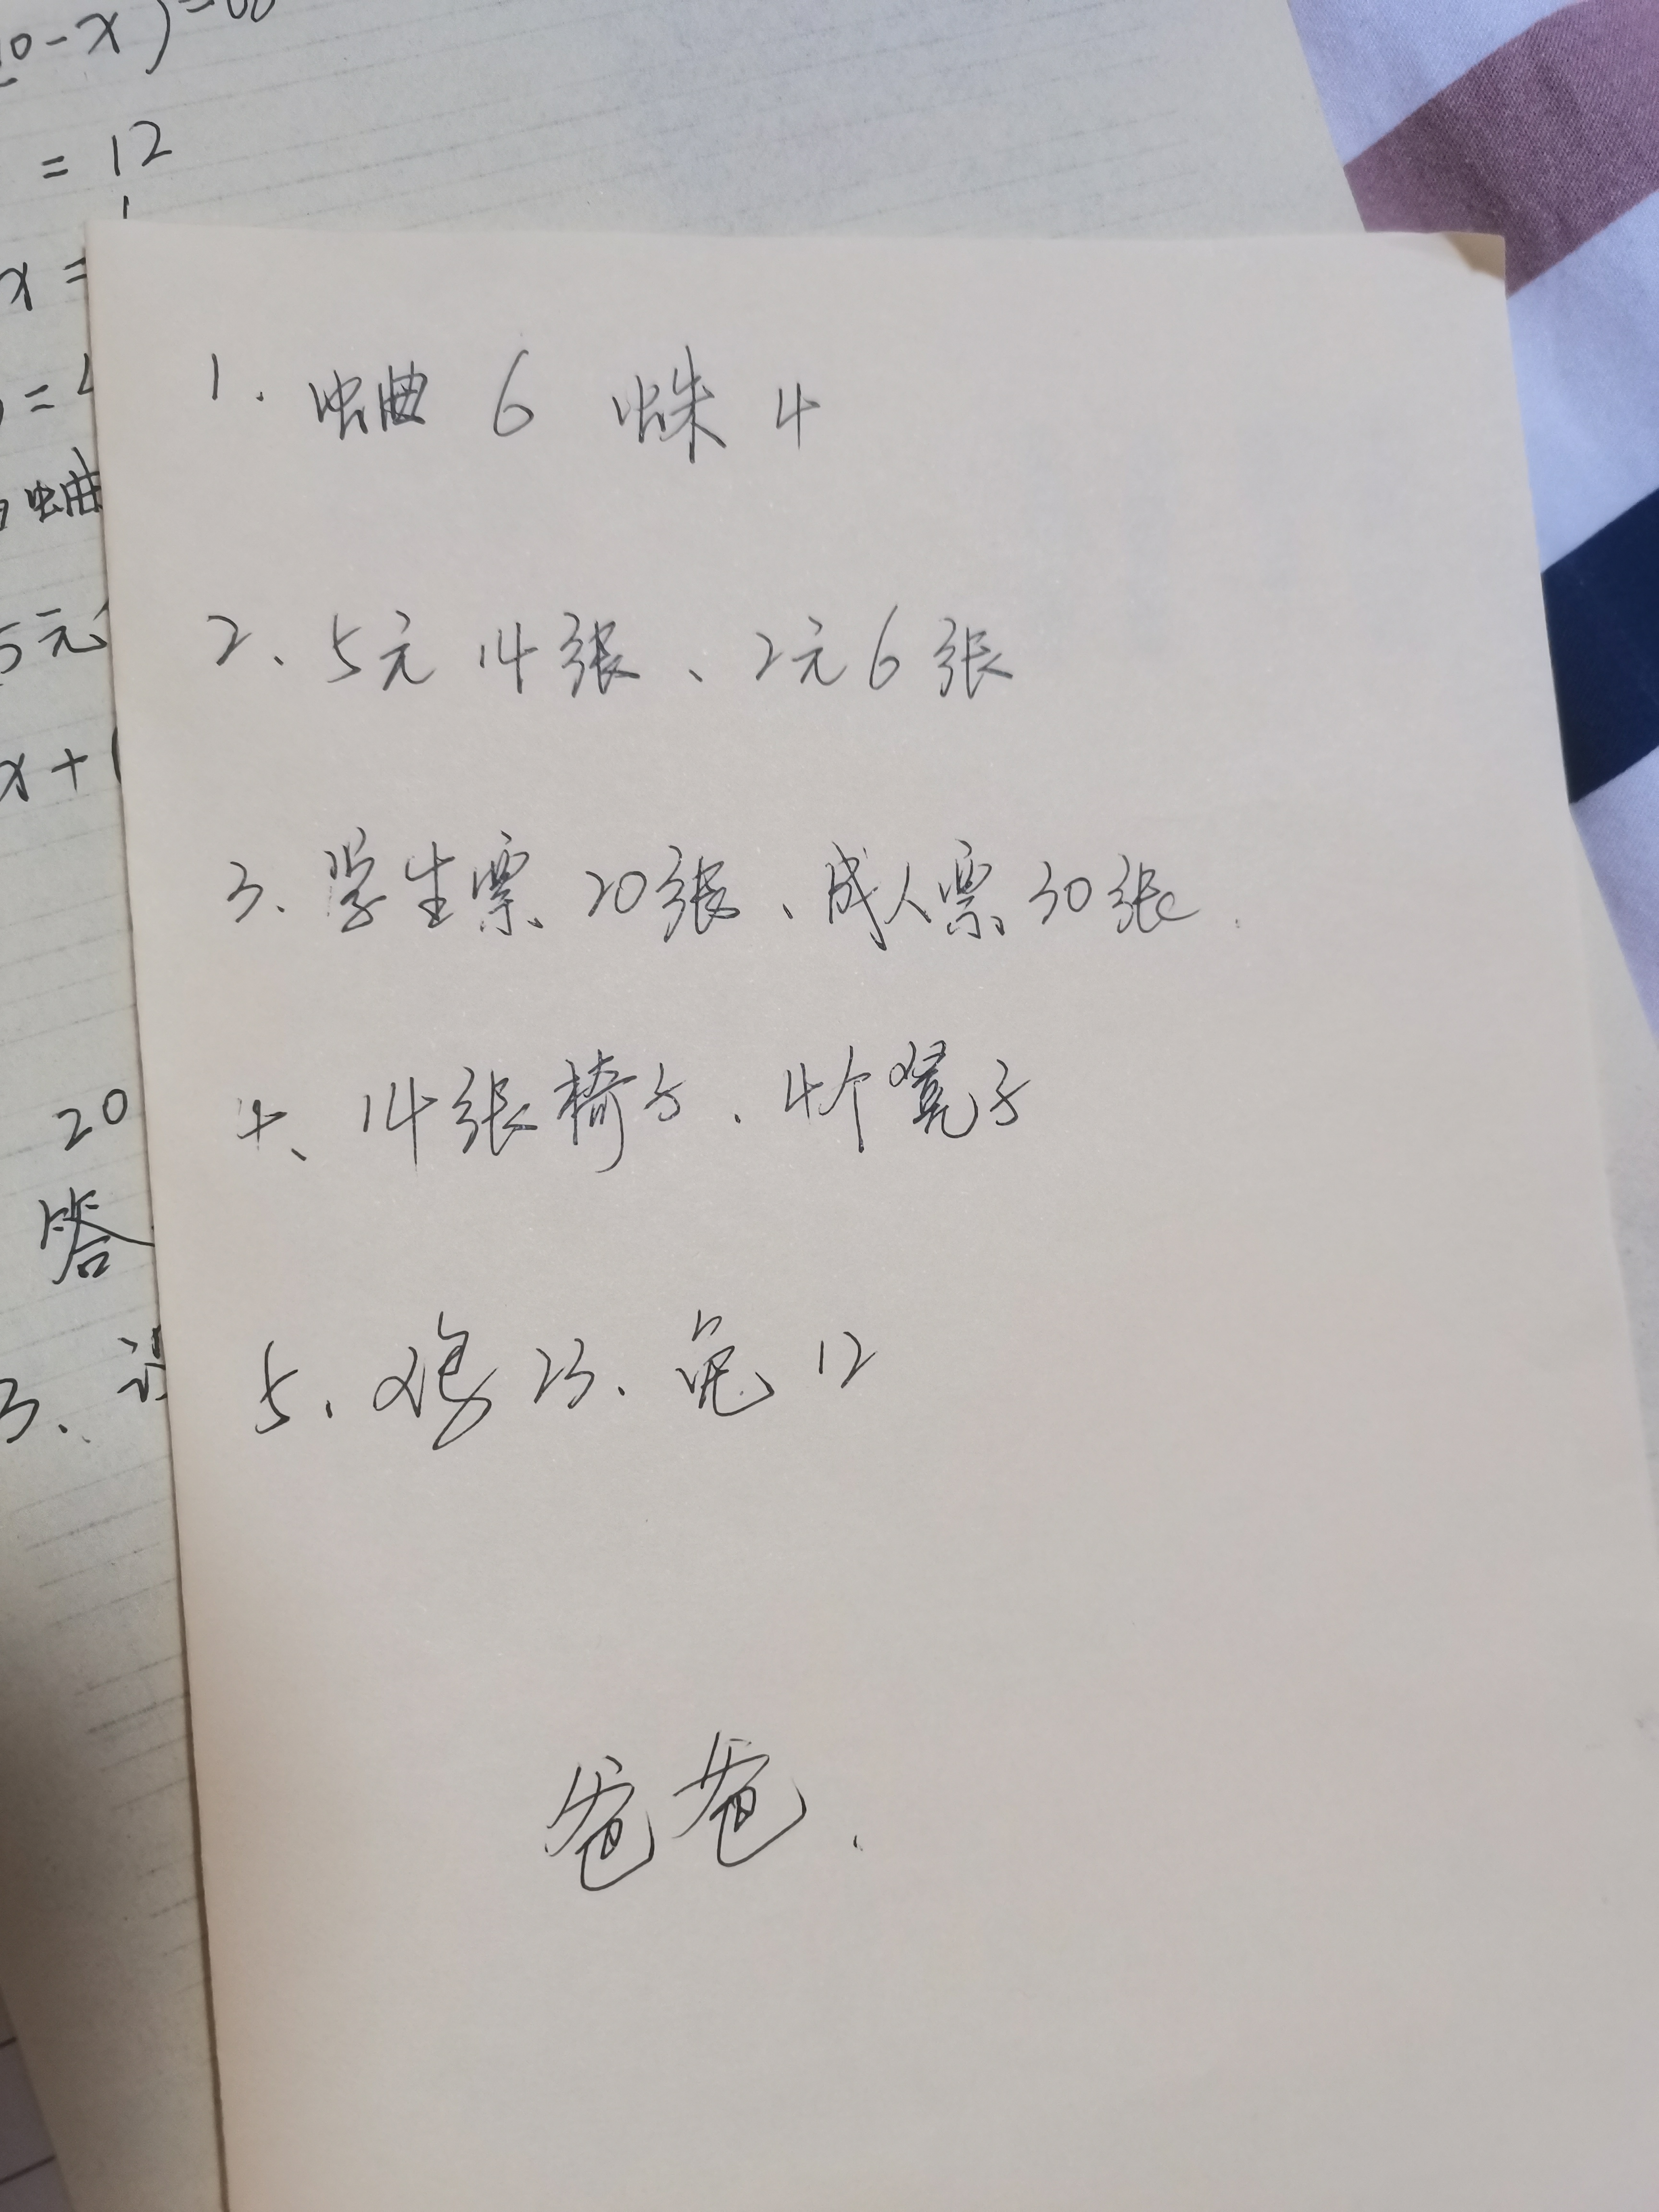 0-x)=60
= 12
x=
=4
蛐
5元
x+1
20
答
3. 设
1. 蛐 6 蛛 4
2、5元 14张、2元6张
3、学生票 20张、成人票 30张.
4、14张椅子、4个凳子
5、鸡 23、兔 12
爸爸.